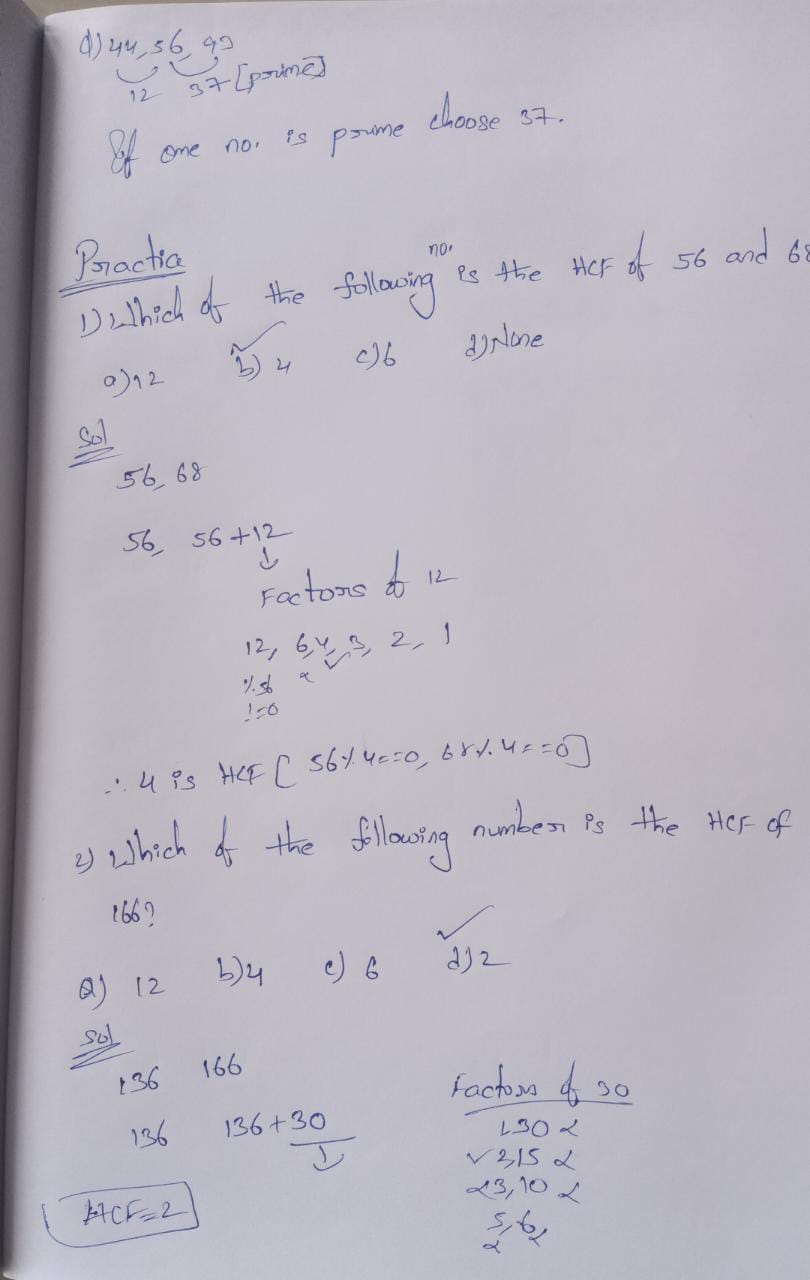 d) 44, 56, 93
12 37 [prime]
If one no. is prime choose 37.
Practice
1) Which of the following no. is the HCF of 56 and 68
a) 12 b) 4 c) 6 d) None
Sol
56, 68
56, 56 + 12
Factors of 12
12, 6, 4, 3, 2, 1
% 56
!=0
∴ 4 is HCF [56 % 4 == 0, 68 % 4 == 0]
2) Which of the following number is the HCF of
166?
a) 12 b) 4 c) 6 d) 2
Sol
136 166
136 136 + 30
Factors of 30
1, 30
2, 15
3, 10
5, 6
HCF = 2